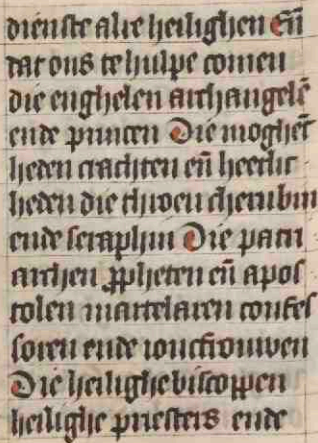 dienste alle heilighen Eñ
dat ons te hulpe comen
die enghelen archangelē
ende princen Die moghēt
heden crachten eñ heerlic
heden die throen cherubin
ende seraphin Die patri
archen ꝓpheten eñ apos
tolen martelaren confes
soren ende ioncfrouwen
Die heilighe biscoppen
heilighe priesters ende